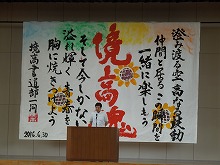 澄み渡る空 高なる鼓動
仲間と居るこの瞬間を
一緒に楽しもう
境高魂
そして今しかない
溢れ輝く青春を
胸に焼きつけよう
境高書道部一同
2016.6.30